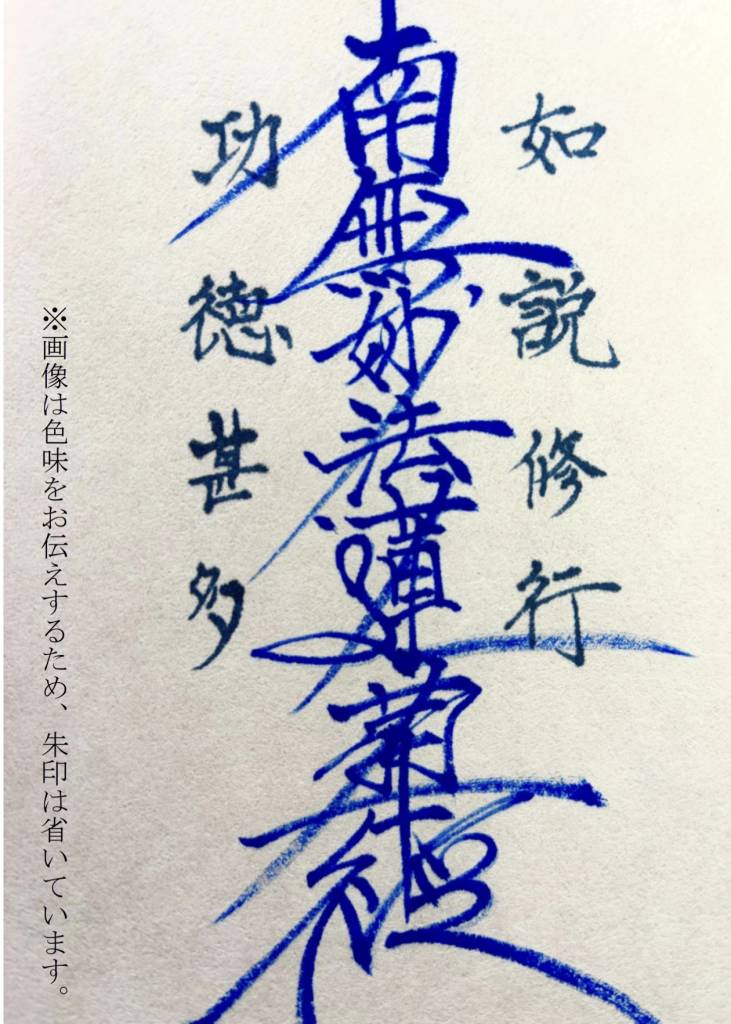 如説修行
南無妙法蓮華経
功徳甚多
※画像は色味をお伝えするため、朱印は省いています。